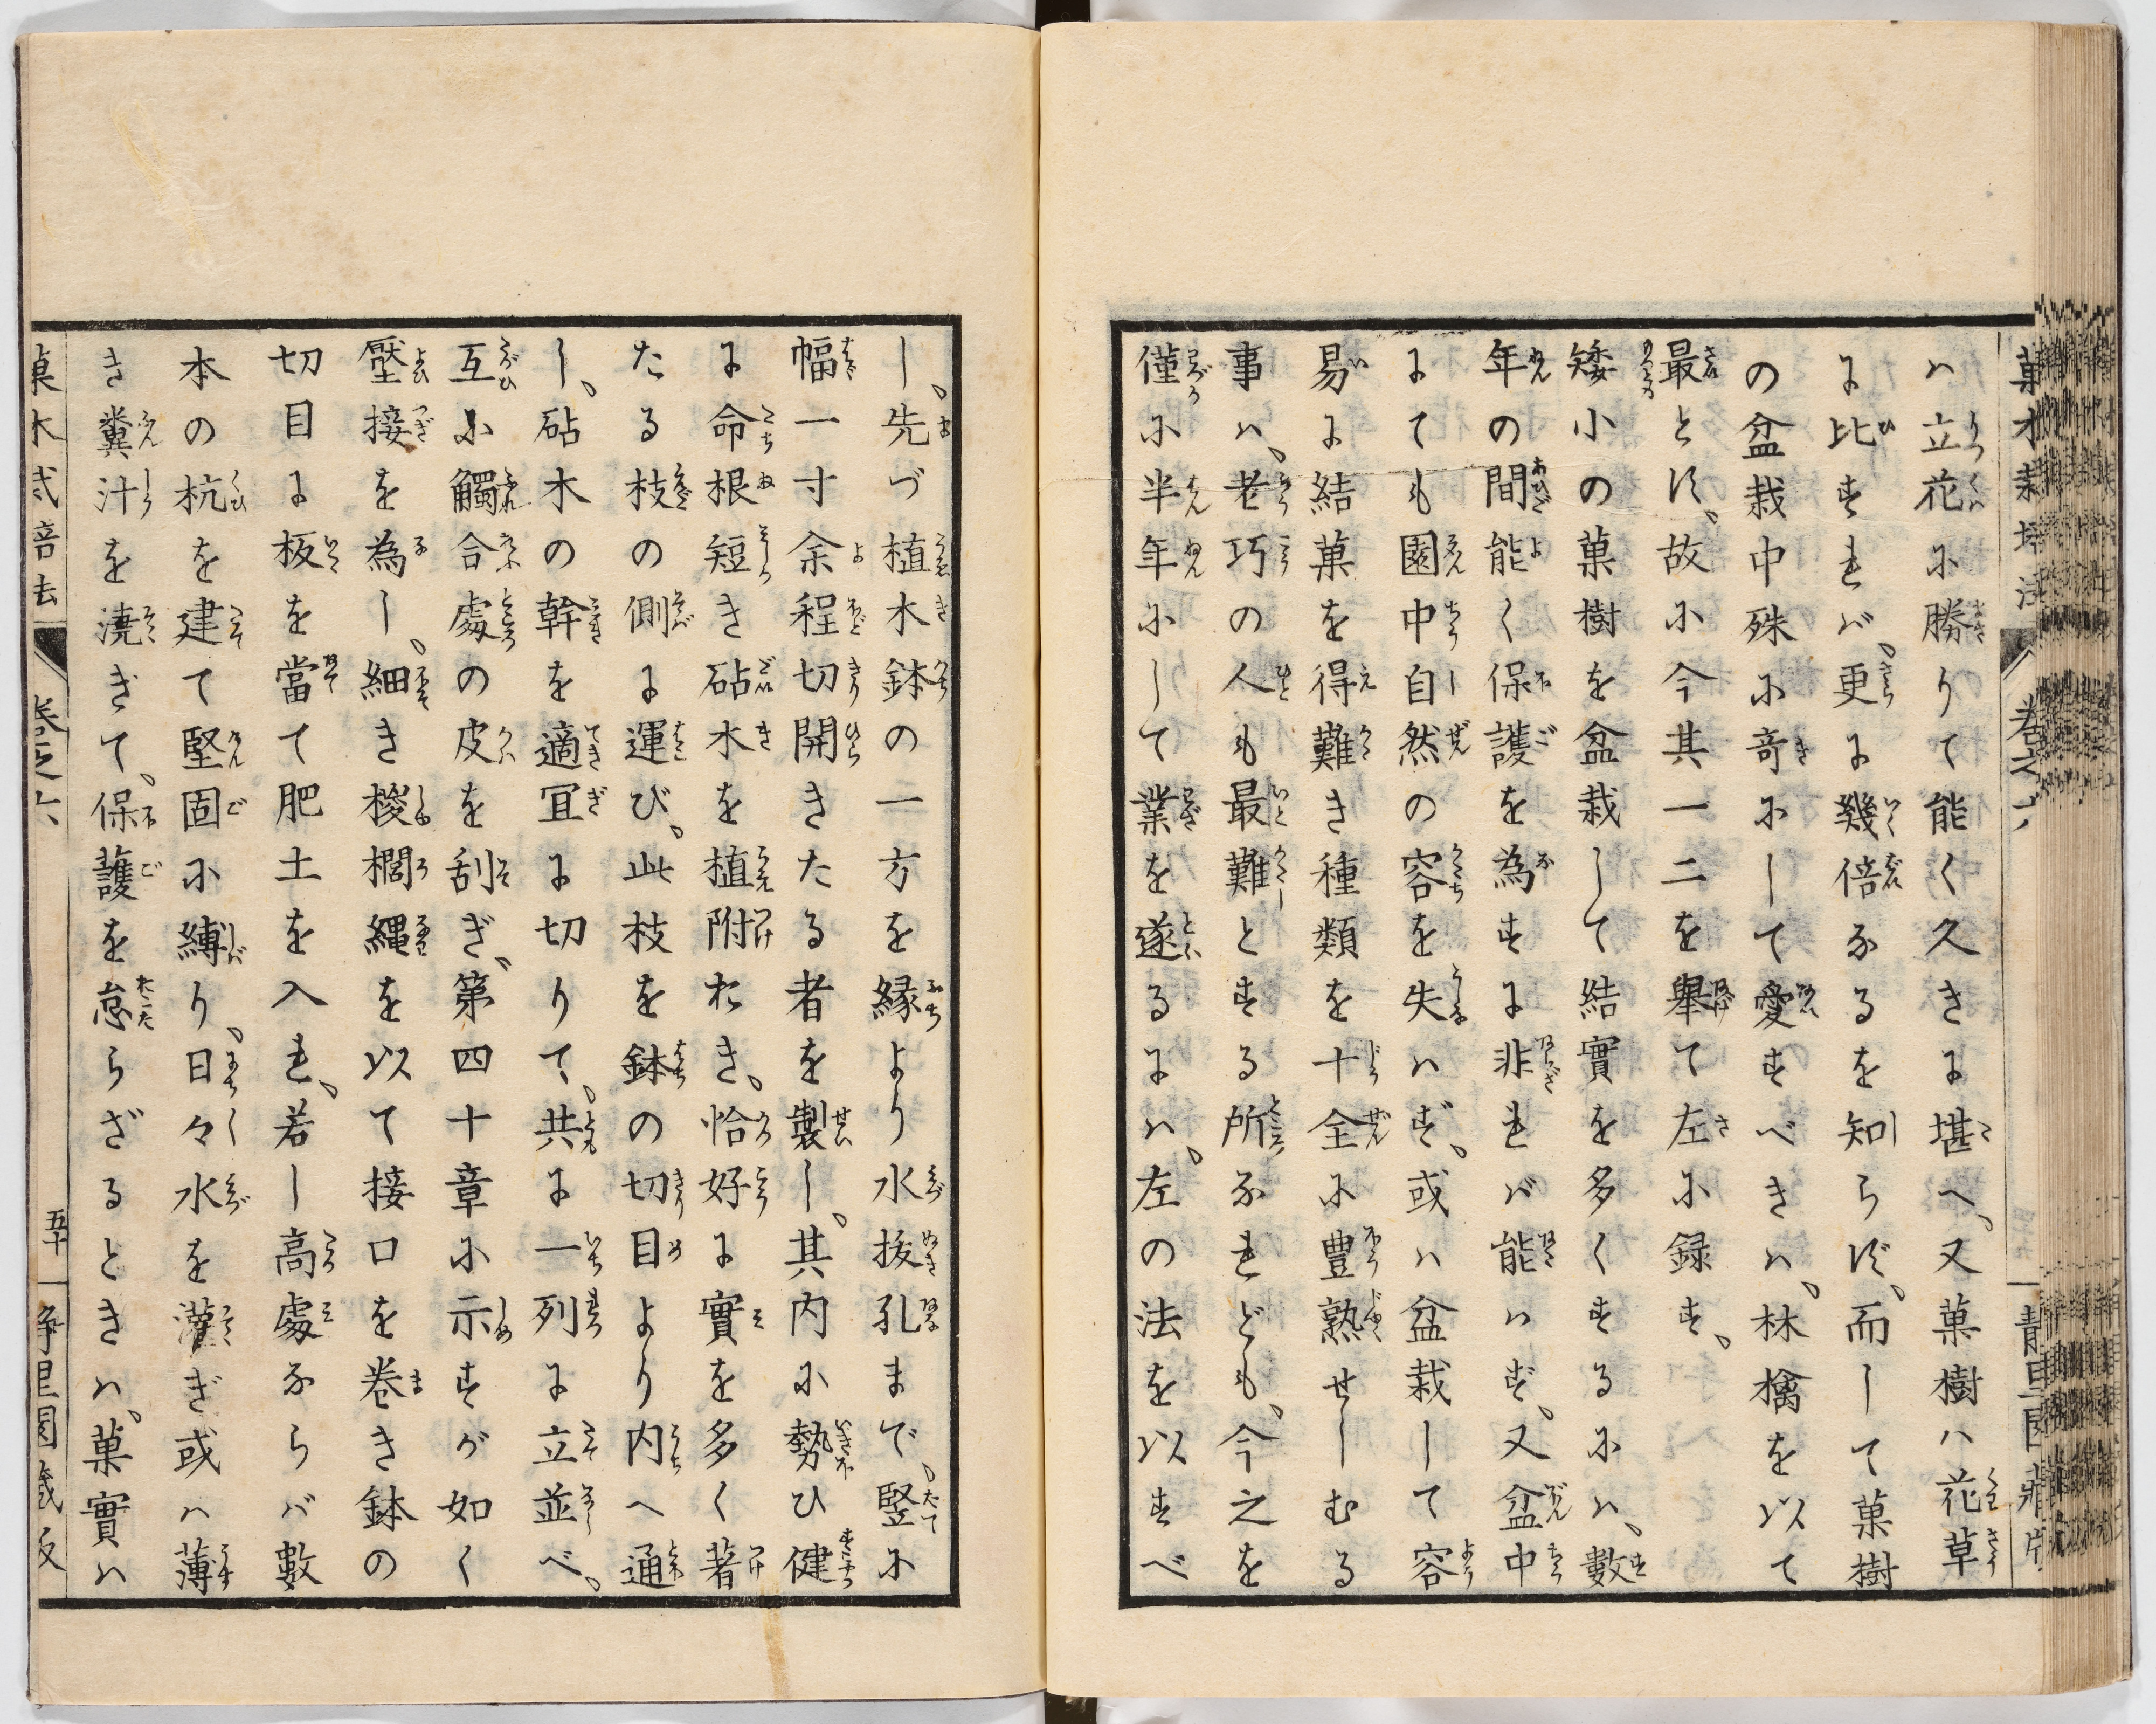 ハ立花小勝りて能く久きに堪へ、又菓樹ハ花草
に比すれバ、更に幾倍なるを知らず、而して菓樹
の盆栽中殊に奇にして愛すべきハ、林檎を以て
最とす、故に今其一二を舉て左に録す、
矮小の菓樹を盆栽して結實を多くするにハ、數
年の間能く保護を為すに非れバ能ハず、又盆中
にても園中自然の容を失ハず、或ハ盆栽して容
易に結菓を得難き種類を十全に豊熟せしむる
事ハ、老巧の人も最難とする所なれども、今之を
僅に半年にして業を遂るにハ、左の法を以すべ
し、先づ植木鉢の一方を縁より水抜孔まで、竪に
幅一寸余程切開きたる者を製し、其内に勢ひ健
に命根短き砧木を植附おき、恰好に實を多く著
たる枝の側に運び、此枝を鉢の切目より内へ通
し、砧木の幹を適冝に切りて、共に一列に立並べ、
互に觸合處の皮を刮ぎ、第四十章に示すが如く
壓接を為し、細き椶櫚縄を以て接口を巻き鉢の
切目に板を當て肥土を入れ、若し高處ならバ數
本の杭を建て堅固に縛り、日々水を灌ぎ或ハ薄
き糞汁を澆ぎて、保護を怠らざるときハ、菓實ハ
巻之六
五十